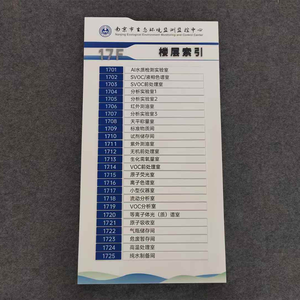 南京市生态环境监测监控中心
Nanjing Ecological Environment Monitoring and Control Center
17F
楼层索引
1701 AI水源检测实验室
1702 SVOC/液相色谱室
1703 SVOC前处理室
1704 分析实验室1
1705 分析实验室2
1706 红外测油室
1707 分析实验室3
1708 天平称量室
1709 标准物质间
1710 试剂储存间
1711 紫外测油室
1712 无机前处理室
1713 生化需氧量室
1714 VOC前处理室
1715 原子荧光室
1716 离子色谱室
1717 小型仪器室
1718 流动分析室
1719 VOC分析室
1720 等离子体光（质）谱室
1721 原子吸收室
1722 气瓶储存间
1723 危废暂存间
1724 高温处理室
1725 纯水制备间